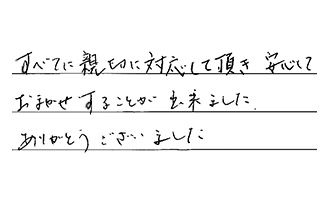 すべてに親切に対応して頂き 安心して
おまかせすることが出来ました.
ありがとうございました